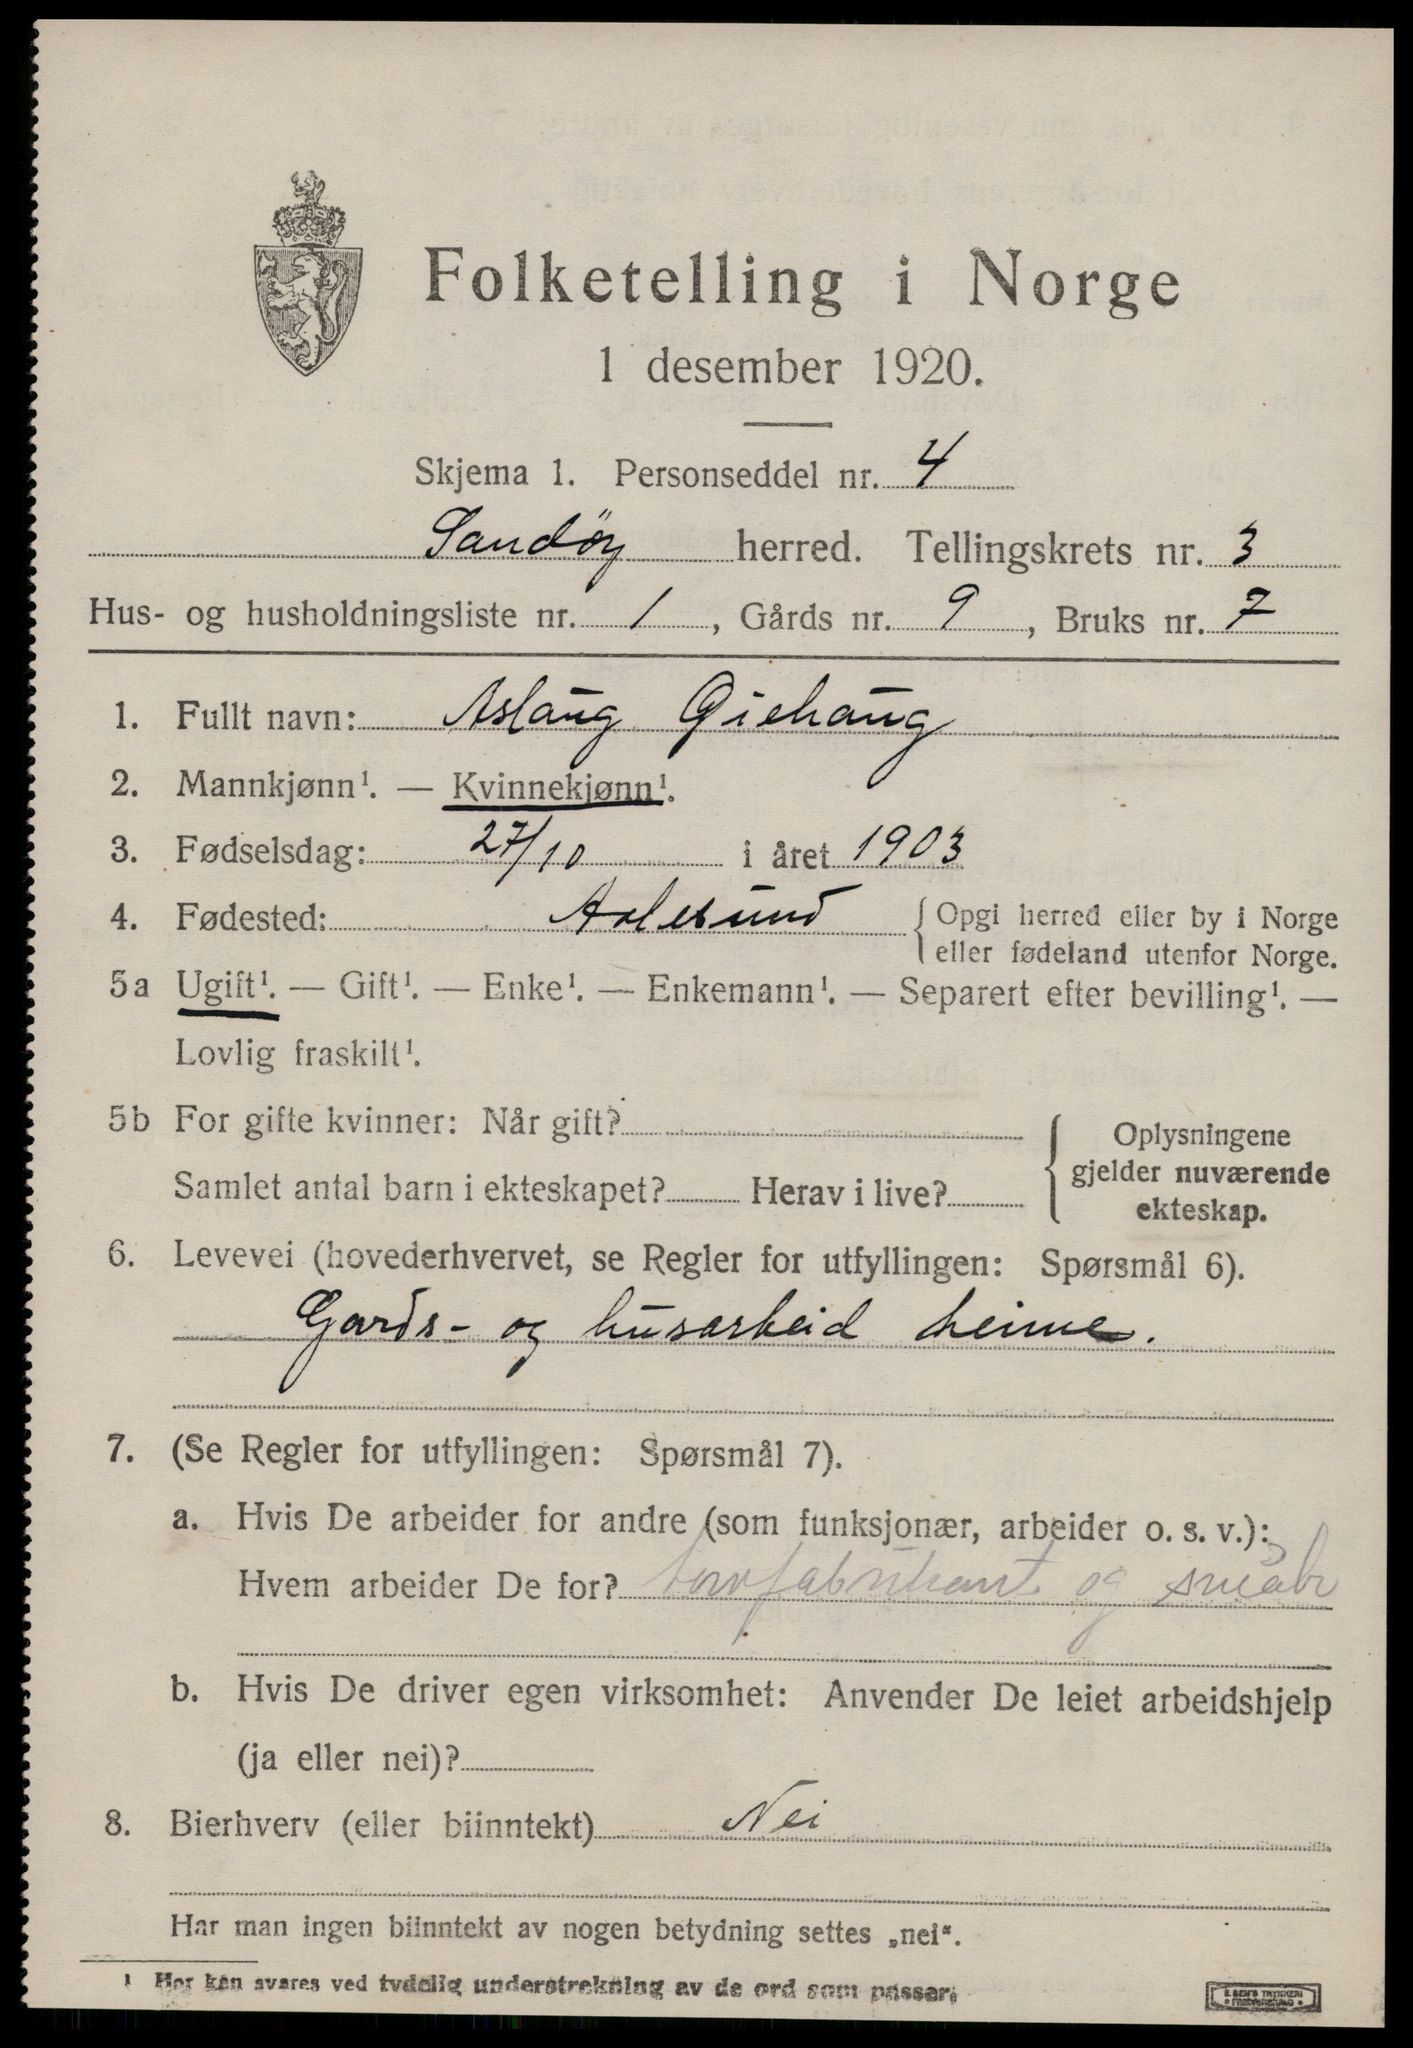 Folketelling i Norge
1 desember 1920.
Skjema 1. Personseddel nr. 4
Sandöy herred. Tellingskrets nr. 3
Hus- og husholdningsliste nr. 1, Gårds nr. 9, Bruks nr. 7
1. Fullt navn: Aslaug Giehaug
2. Mannkjønn¹. — Kvinnekjønn¹.
3. Fødselsdag: 27/10 i året 1903
4. Fødested: Aalesund { Opgi herred eller by i Norge
eller fødeland utenfor Norge.
5a Ugift¹. — Gift¹. — Enke¹. — Enkemann¹. — Separert efter bevilling¹. —
Lovlig fraskilt¹.
5b For gifte kvinner: Når gift?
Samlet antal barn i ekteskapet? Herav i live?
Oplysningene
gjelder nuværende
ekteskap.
6. Levevei (hovederhvervet, se Regler for utfyllingen: Spørsmål 6).
Gards- og husarbeid heime.
7. (Se Regler for utfyllingen: Spørsmål 7).
a. Hvis De arbeider for andre (som funksjonær, arbeider o. s. v.):
Hvem arbeider De for? og småbr
b. Hvis De driver egen virksomhet: Anvender De leiet arbeidshjelp
(ja eller nei)?
8. Bierhverv (eller biinntekt) Nei
Har man ingen biinntekt av nogen betydning settes „nei“.
¹ Her kan svares ved tydelig understrekning av de ord som passer.